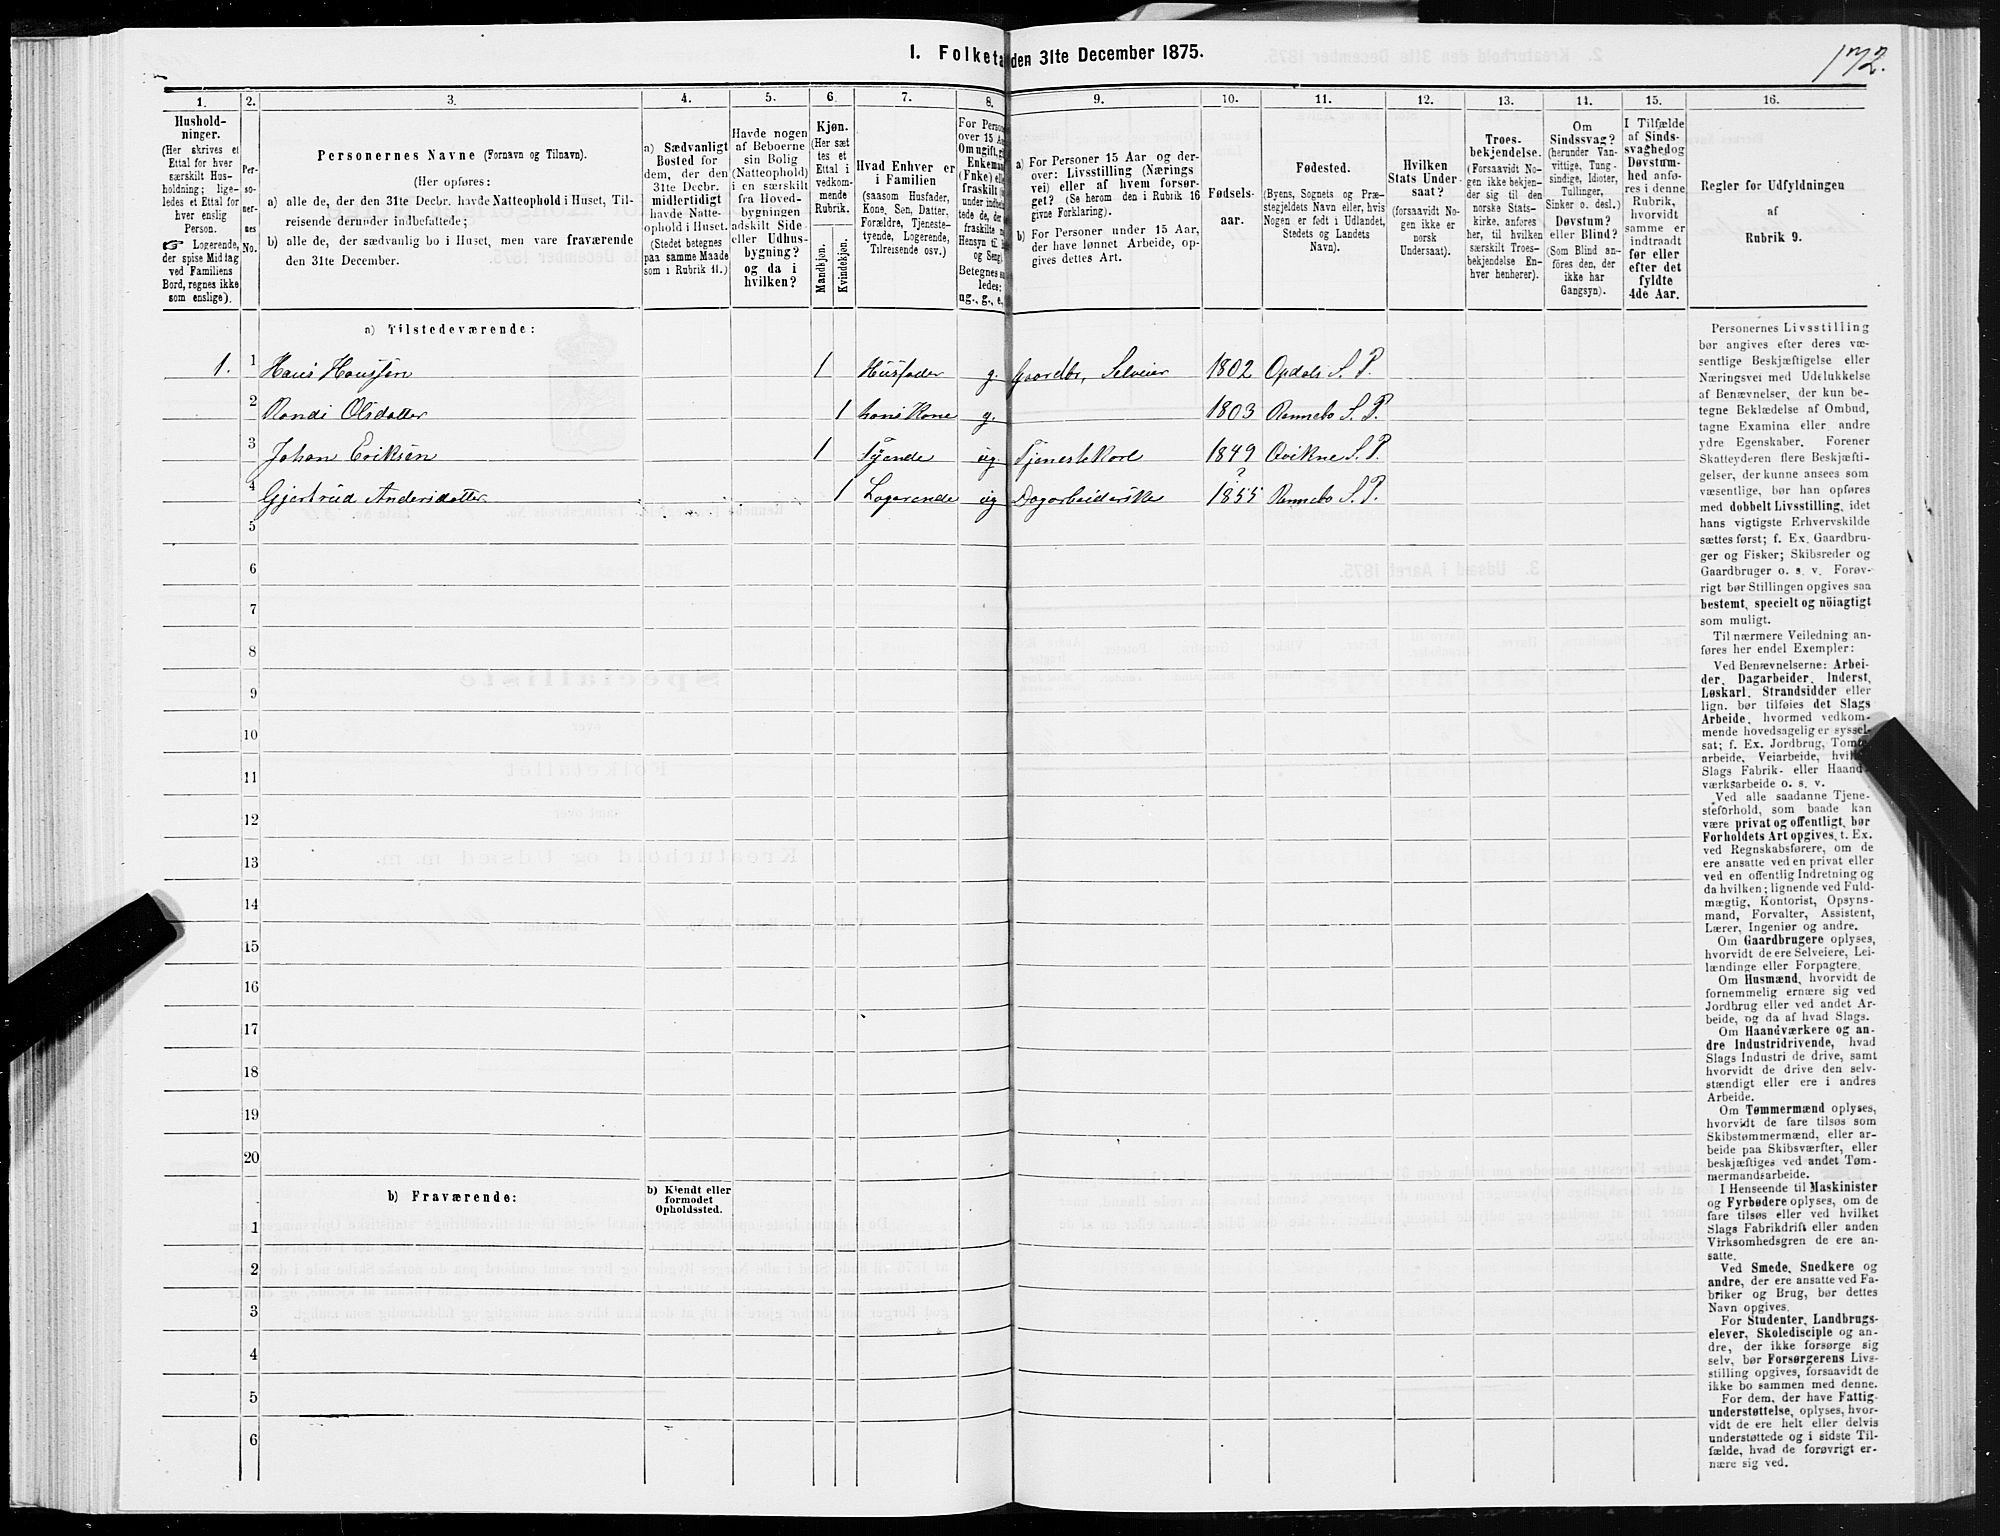 I. Folketa den 31te December 1875.
172.
1.
2.
3.
4.
5.
6.
7.
8.
9.
10.
11.
12.
13.
14.
15.
16.
Hushold-
ninger.
(Her skrives et
Ettal for hver
særskilt Hus-
holdning; lige-
ledes et Ettal for
hver enslig
Person.
☞ Logerende,
der spise Middag
ved Familiens
Bord, regnes ikke
som enslige).
Per-
so-
ner-
nes
No.
Personernes Navne (Fornavn og Tilnavn).
(Her opføres:
a) alle de, der den 31te Decbr. havde Natteophold i Huset, Til-
reisende derunder indbefattede;
b) alle de, der sædvanlig bo i Huset, men vare fraværende
den 31te December.
a) Sædvanligt
Bosted for
dem, der den
31te Decbr.
midlertidigt
havde Natte-
ophold i Huset.
(Stedet betegnes
paa samme Maade
som i Rubrik 11.)
Havde nogen
af Beboerne
sin Bolig
(Natteophold)
i en særskilt
fra Hoved-
bygningen
adskilt Side-
eller Udhus-
bygning?
og da i
hvilken?
Kjøn.
(Her sæt
tes et
Ettal i
vedkom-
mende
Rubrik.
Mandkjøn.
Kvindekjøn.
Hvad Enhver er
i Familien
(saasom Husfader,
Kone, Søn, Datter,
Forældre, Tjeneste-
tyende, Logerende,
Tilreisende osv.)
For Perso
over 15 Aa
Om ugift, gi
Enkeman
(Enke) elle
fraskilt (
under indbe
tede de, de
fraskilte
Hensyn til
og Seng).
Betegnes sa
ledes:
ug., g., e.
a) For Personer 15 Aar og der-
over: Livsstilling (Nærings
vei) eller af hvem forsør-
get? (Se herom den i Rubrik 16
givne Forklaring).
b) For Personer under 15 Aar,
der have lønnet Arbeide, op-
gives dettes Art.
Fødsels-
aar.
Fødested.
(Byens, Sognets og Præ-
stegjeldets Navn eller, hvis
Nogen er født i Udlandet,
Stedets og Landets
Navn).
Hvilken
Stats Under-
saat?
(forsaavidt No-
gen ikke er
norsk
Undersaat).
Troes-
bekjendelse.
(Forsaavidt No-
gen ikke bekjen-
der sig til den
norske Stats-
kirke, anføres
her, til hvilken
særskilt Troes-
bekjendelse En-
hver henhører).
Om
Sindssvag?
(herunder Van-
vittige, Tung-
sindige, Idioter,
Tullinger,
Sinker o. desl.)
Døvstum?
eller Blind?
(Som Blind an-
føres den, der
ikke har
Gangsyn).
I Tilfælde
af Sinds-
svaghed og
Døvstum-
hed anfø-
res i denne
Rubrik,
hvorvidt
samme er
indtraadt
før eller
efter det
fyldte
4de Aar.
Regler for Udfyldningen
af
Rubrik 9.
a) Tilstedeværende:
1. 1 Hans Hansen 1 Husfader g. Gaardbr, Selveier 1802 Opdals S. P.
2 Randi Olsdatter 1 hans Kone g. 1803 Rennebo S. P.
3 Johan Eriksen 1 Tyende ug. Tjenestekarl 1849 Qvikne S. P.
4 Gjertrud Andersdatter 1 Logerende ug Dagarbeiderske 1855 ? Rennebo S. P.
5
6
7
8
9
10
11
12
13
14
15
16
17
18
19
20
b) Fraværende:
b) Kjendt eller
formodet
Opholdssted.
1
2
3
4
5
6
Personernes Livsstilling
bør angives efter deres væ-
sentlige Beskjæftigelse eller
Næringsvei med Udelukkelse
af Benævnelser, der kun be-
tegne Beklædelse af Ombud,
tagne Examina eller andre
ydre Egenskaber. Forener
Skatteyderen flere Beskjæfti-
gelser, der kunne ansees som
væsentlige, bør han opføres
med dobbelt Livsstilling, idet
hans vigtigste Erhvervskilde
sættes først; f. Ex. Gaardbru-
ger og Fisker; Skibsreder og
Gaardbruger o. s. v. Forøv-
rigt bør Stillingen opgives saa
bestemt, specielt og nöiagtigt
som muligt.
Til nærmere Veiledning an-
føres her endel Exempler:
Ved Benævnelserne: Arbei-
der, Dagarbeider, Inderst,
Løskarl, Strandsidder eller
lign. bør tilføies det Slags
Arbeide, hvormed vedkom-
mende hovedsagelig er syssel-
sat; f. Ex. Jordbrug, Tomte-
arbeide, Veiarbeide, hvil
Slags Fabrik- eller Haand-
værksarbeide o. s. v.
Ved alle saadanne Tjene-
steforhold, som baade kan
være privat og offentligt, bør
Forholdets Art opgives, t. Ex.
ved Regnskabsførere, om de
ere ansatte ved en privat eller
ved en offentlig Indretning og
da hvilken; lignende ved Fuld-
mægtig, Kontorist, Opsyns-
mand, Forvalter, Assistent,
Lærer, Ingeniør og andre.
Om Gaardbrugere oplyses,
hvorvidt de ere Selveiere, Lei-
lændinge eller Forpagtere.
Om Husmænd, hvorvidt de
fornemmelig ernære sig ved
Jordbrug eller ved andet Ar-
beide, og da af hvad Slags.
Om Haandværkere og an-
dre Industridrivende, hvad
Slags Industri de drive, samt
hvorvidt de drive den selv-
stændigt eller ere i andres
Arbeide.
Om Tømmermænd oplyses,
hvorvidt de fare tilsøs som
Skibstømmermænd, eller ar-
beide paa Skibsværfter, eller
beskjæftiges ved andet Tøm-
mermandsarbeide.
I Henseende til Maskinister
og Fyrbødere oplyses, om de
fare tilsøs eller ved hvilket
Slags Fabrikdrift eller anden
Virksomhedsgren de ere an-
satte.
Ved Smede, Snedkere og
andre, der ere ansatte ved Fa-
briker og Brug, bør dettes
Navn opgives.
For Studenter, Landbrugs-
elever, Skoledisciple og an-
dre, der ikke forsørge sig
selv, bør Forsørgerens Livs-
stilling opgives, forsaavidt de
ikke bo sammen med denne.
For dem, der have Fattig-
understøttelse, oplyses, hvor-
vidt de ere helt eller delvis
understøttede og i sidste Til-
fælde, hvad de forøvrigt er-
nære sig ved.